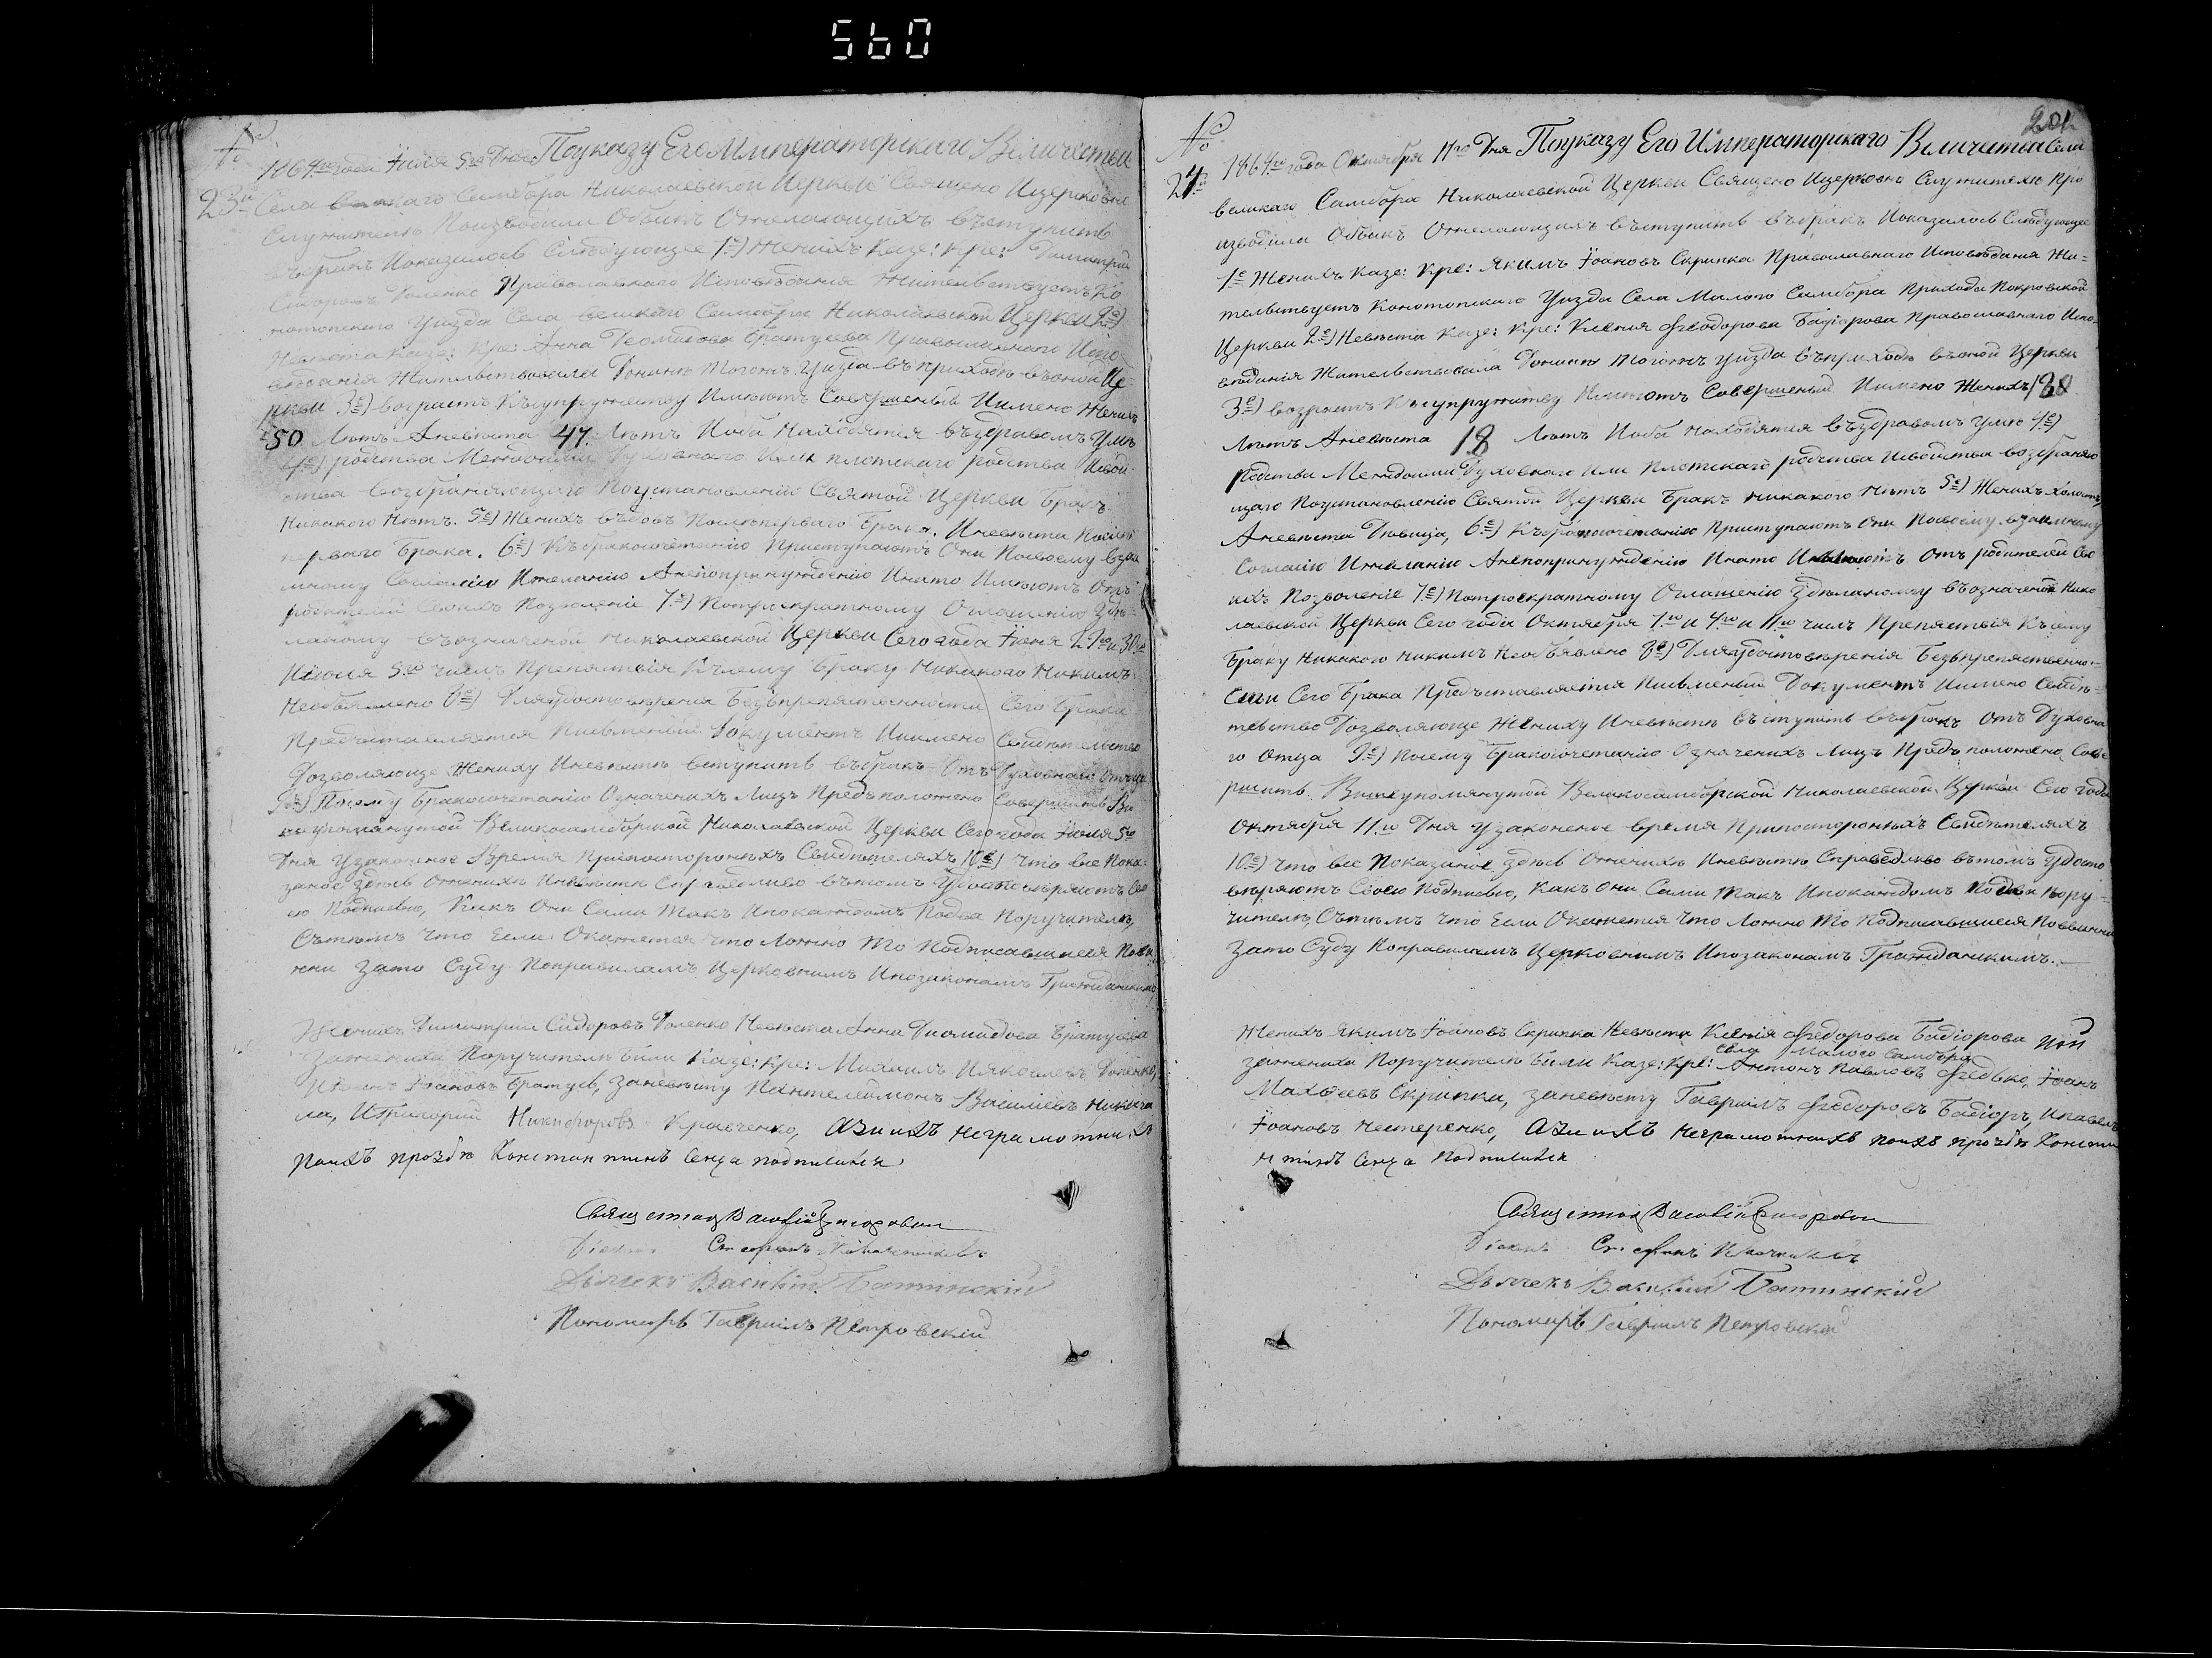 560
№
23й
1864го года Июля 5го Дня По указу Его Императорскаго Величества
Села великаго Самбора Николаевской Церкви Священо Ицерковно
Служителю Производили Обыскъ Ожелающихъ въступить
въбракъ Ипоказалось Слѣдующее 1е) Женихъ Казе: Кре: Димитрий
Сидоровъ Доленко Православнаго Исповѣданія Жителствуетъ Ко
нотопскаго Уизда Села великаго Самбора Николаевской Церкви 2е)
Невѣста Казе: Кре: Анна Диомидова Братусева Православнаго Испо
вѣданія Жителствовала Донынѣ Тогожъ Уизда въприходѣ въоной Це-
ркви 3е) возрастъ Късупружеству Имеютъ Совершеный Иимено Женихъ
50 Лѣтъ Аневѣста 47 Лѣтъ Иоба Находятся въздравомъ Умѣ
4е) родства Междоими Духовнаго Или плотскаго родства Исвой-
ства возбраняющаго Поустановленію Святой Церкви Бракъ
Никакого Нѣтъ. 5е) Женихъ въдовъ Послѣперваго Брака, Иневѣста Послѣ
перваго Брака. 6е) Къбракосочетанію Приступаютъ Они Посвоему взаи
мному Согласію Ижеланію Анепопринуждению Инато Имеютъ Отъ
родителей Своихъ Позволеніе 7е) Потроекратному Оглашенію Здѣ-
ланому въозначеной Николаевской Церкви Сего года Июня 29го и 30го
Июля 5го числъ Препяствія Къчему Браку Никакого Никимъ
Необъявлено 8е) Дляудостовѣренія Безъпрепятственности Сего Брака
Представляется Писменый Документъ Иимено Свидѣтельство
Дозволяюще Жениху Иневѣстѣ вступить въбракъ Отъ Духовнаго Отца
9е) Посему Бракосочетанію Означеныхъ Лицъ Предположено Совершить Ви
шеупомянутой Великосамборской Николаевской Церкви Сего года Июля 5го
Дня Узаконеное Время Припостороныхъ Свидѣтеляхъ 10е) Что все Пока-
заное здѣсь Оженихѣ Иневѣстѣ Справедливо вътомъ Удостовѣряютъ Сво
ею Подписею, Какъ Они Сами Такъ Ипокаждомъ Подва Поручителѣ,
Сътемъ Что Если Окажется Что Ложно То Подписавшиеся Повин
ни Зато Суду Поправиламъ Церковнимъ Ипозаконамъ Гражданскимъ
Женихъ Димитрий Сидоровъ Доленко Невѣста Анна Диомидова Братусева
Зажениха Поручителѣ Били Казе: Кре: Михаилъ Ияковлевъ Доленко,
Иоановъ Братусь, Заневѣсту Пантелеймонъ Василіевъ
ла, Игригорий Никифоровъ Кравченко, Азаихъ Неграмотнихъ
Поихъ прозбѣ Константинъ Сенда подписался
Священикъ Василій Григоровичъ
Діаконъ Стефанъ
Дьячекъ Василій
Пономарь Гавриилъ Петровскій
201
№
24й
1864го года Октября 11го Дня По указу Его Императорскаго Величества Села
великаго Самбора Николаевской Церкви Священо Ицерковно Служителѣ Про
изводили Обыскъ Ожелающихъ въступить въбракъ Ипоказалось Слѣдующее
1е Женихъ Казе: Кре: Якимъ Иоановъ Скрипка Православнаго Исповѣданія Жи-
телствуетъ Конотопскаго Уизда Села Малого Самбора Прихода Покровской
Церкви 2е) Невѣста Казе: Кре: Ксенія Феодорова Бадіорова Православнаго Испо-
вѣданія Жителствовала Донынѣ Тогожъ Уизда въприходѣ въоной Церкви
3е) возрастъ Късупружитву Имеютъ Совершеный Иимено Женихъ
Лѣтъ Аневѣста 18 Лѣтъ Иоба Находятся въздравомъ Умѣ 4е)
Родства Междоими Духовнаго Или Плотскаго родства Исвойства возбраняю
щаго Поустановленію Святой Церкви Бракъ Никакого Нѣтъ 5е) Женихъ Холостъ,
Аневѣста Дѣвица, 6е) Къбракосочетанію Приступаютъ Они Посвоему взаимному
Согласію Ижеланію Анепопринуждению Инато Имеютъ Отъ родителей Сво
ихъ Позволеніе 7е) Потроекратному Оглашенію Здѣланому въозначеной Нико
лаевской Церкви Сего года Октября 1го и 4го и 11го числъ Препяствія Къему
Браку Никакого Никимъ Необъявлено 8е) Дляудостовѣренія Безъпрепяственно-
сти Сего Брака Предъставляется Писменый Документъ Иимено Свидѣ-
телство Дозволяюще Жениху Иневѣстѣ въступить въбракъ Отъ Духовна
го Отца 9е) Посему Бракосочетанію Означеныхъ Лицъ Предъположено Сове
ршить Вишеупомянутой Великосамборской Николаевской Церкви Сего года
Октября 11го Дня Узаконеное время Припостороныхъ Свидѣтеляхъ
10е) Что все Показаное здѣсь Оженихѣ Иневѣстѣ Справедливо вътомъ Удосто
вѣряютъ Своею Подписею, Какъ Они Сами Такъ Ипокаждомъ Подва Пору-
чителѣ, Сътѣмъ Что Если Окажется Что Ложно То Подписавшиеся Повинни
Зато Суду Поправиламъ Церковнимъ Ипозаконамъ Гражданскимъ.
Женихъ Якимъ Иоановъ Скрипка Невѣста Ксенія Федорова Бадіорова
Села Малого Самбора
зажениха Поручителѣ Били Казе: Кре: Антонъ Павловъ Федько, Иоанъ
Матвеевъ Скрипка, Заневѣсту Гавриилъ Федоровъ Бадіоръ, Ипавелъ
Иоановъ Нестеренко, Азаихъ Неграмотнихъ поихъ прозбѣ Конста
нтинъ Сенда Подписался
Священикъ Василій Григоровичъ
Діаконъ Стефанъ
Дьячекъ Василій
Пономарь Гавриилъ Петровскій